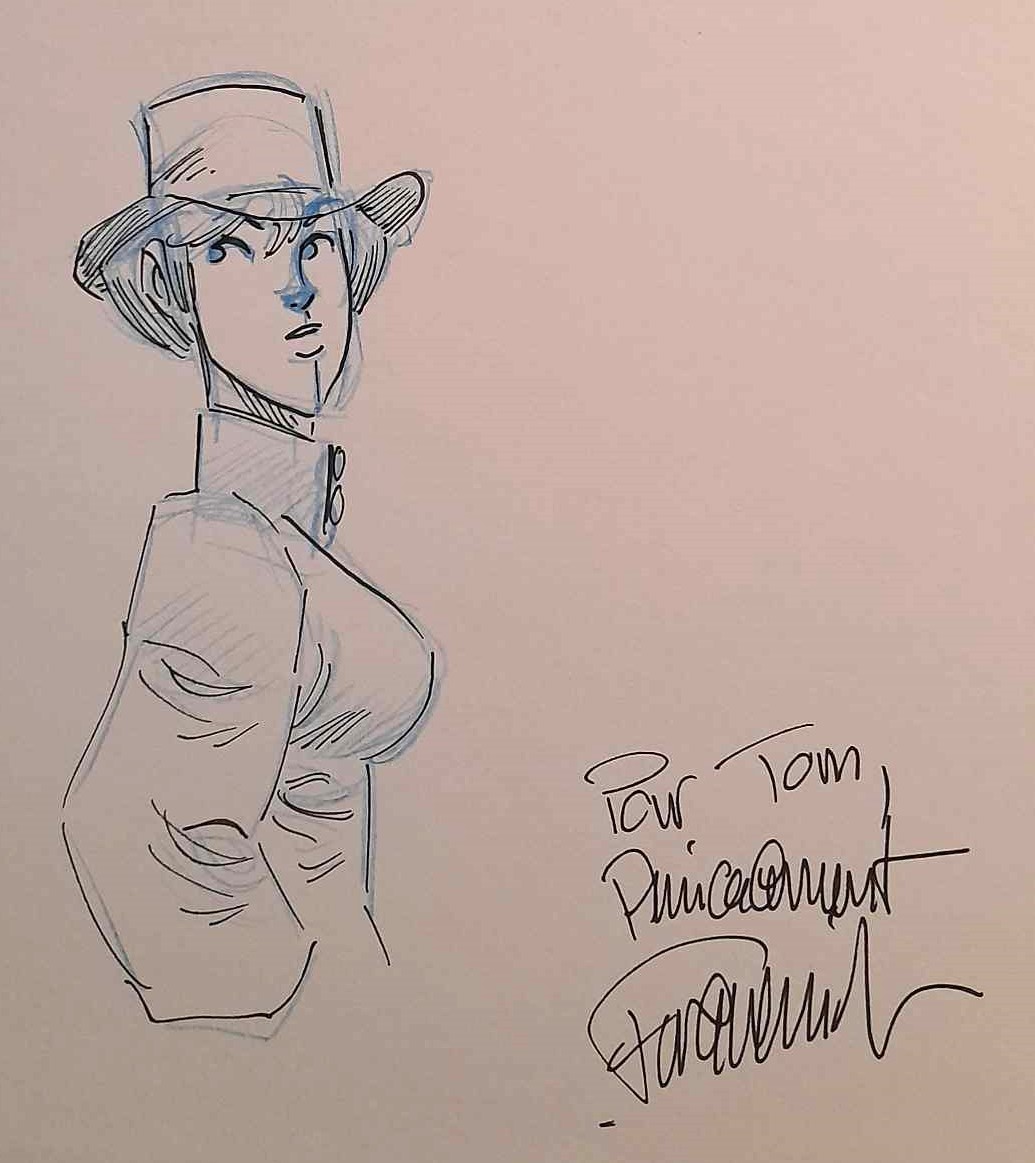 Pour Tom
Amicalement